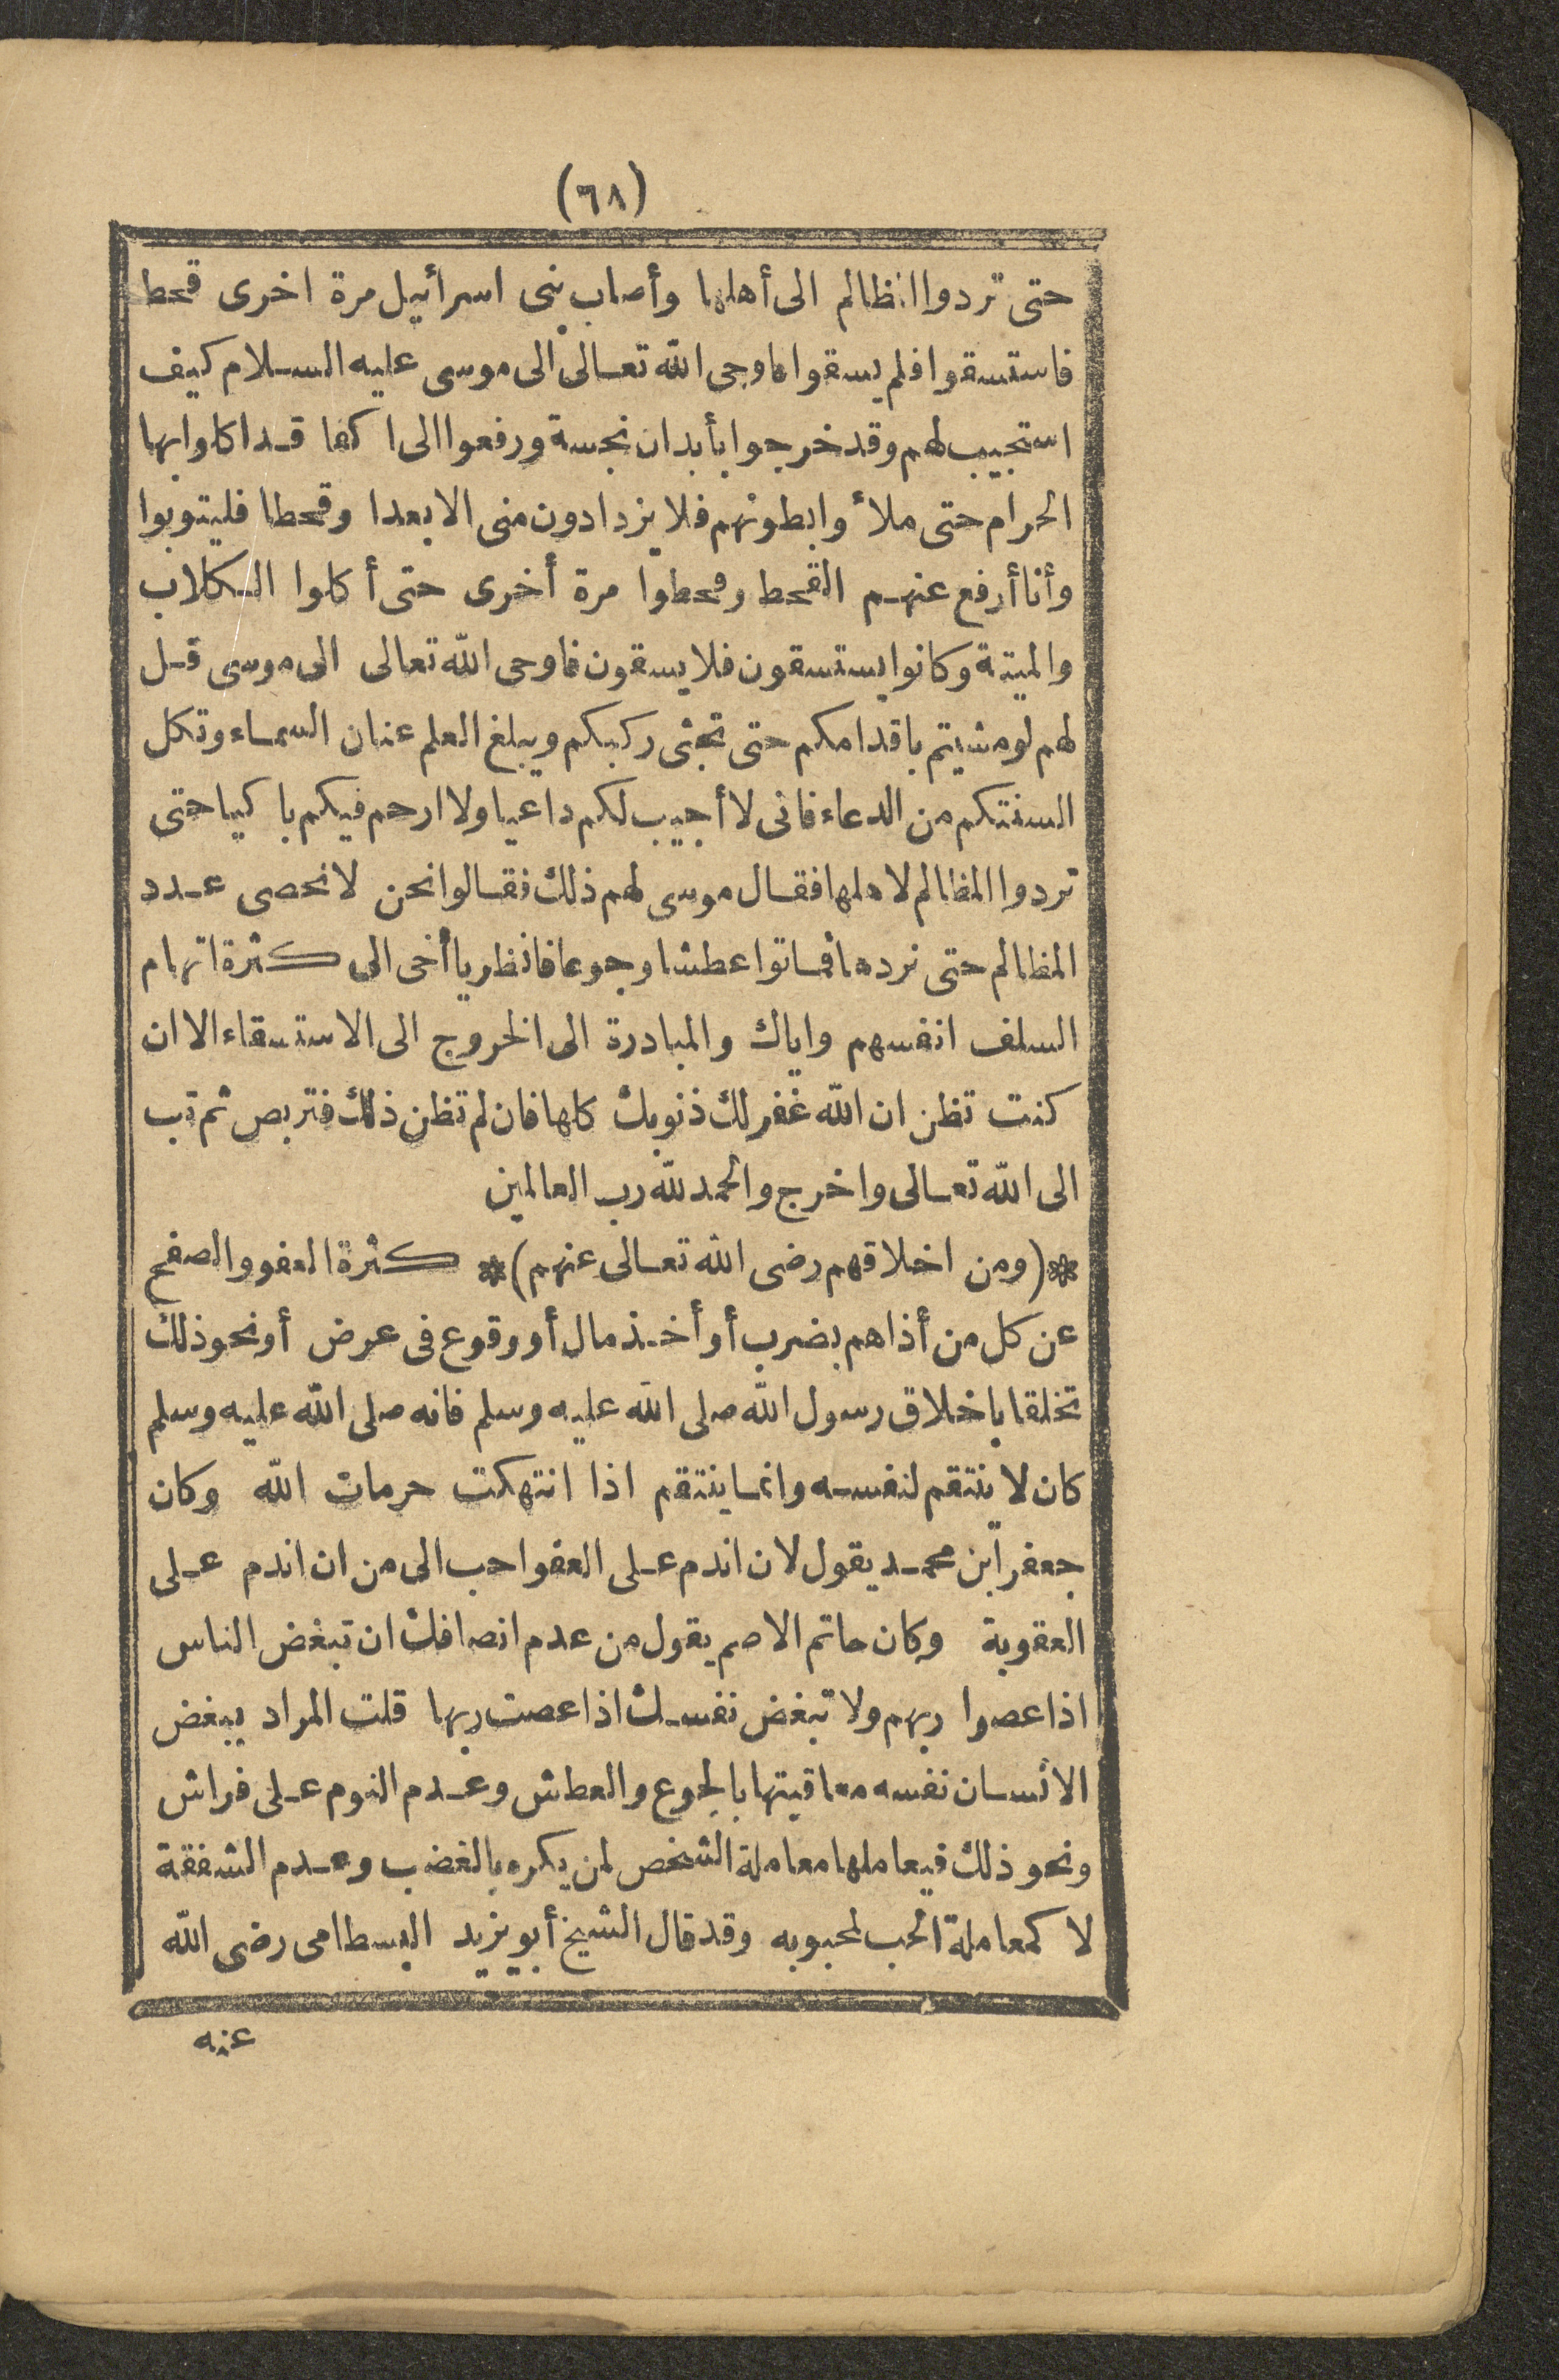 (٦٨)
حتى تردوا المظالم الى أهلها وأصاب بنى اسرائيل مرة اخرى قحط
فاستسقوا فلم يسقوا فاوحى الله تعالى الى موسى عليه السلام كيف
استجيب لهم وقد خرجوا بأبدان نجسة ورفعوا الى اكفا قد اكلوا بها
الحرام حتى ملأ وابطونهم فلا يزدادون منى الابعدا وقحطا فليتوبوا
وأنا أرفع عنهم القحط وقحطوا مرة أخرى حتى أكلوا الكلاب
والميتة وكانوا يستسقون فلا يسقون فاوحى الله تعالى الى موسى قل
لهم لو مشيتم باقدامكم حتى تجثى ركبكم ويبلغ العلم عنان السماء وتكل
السنتكم من الدعاء فانى لا أجيب لكم داعيا ولا ارحم فيكم باكيا حتى
تردوا المظالم لاهلها فقال موسى لهم ذلك فقالوا نحن لا نحصى عدد
المظالم حتى نردها فماتوا عطشا وجوعا فانظر يا أخى الى كثرة اتهام
السلف انفسهم واياك والمبادرة الى الخروج الى الاستسقاء الا ان
كنت تظن ان الله غفر لك ذنوبك كلها فان لم تظن ذلك فتربص ثم تب
الى الله تعالى واخرج والحمد لله رب العالمين
* (ومن اخلاقهم رضى الله تعالى عنهم) * كثرة العفو والصفح
عن كل من أذاهم بضرب أو أخذ مال أو وقوع فى عرض أو نحو ذلك
تخلقا باخلاق رسول الله صلى الله عليه وسلم فانه صلى الله عليه وسلم
كان لا ينتقم لنفسه وانما ينتقم اذا انتهكت حرمات الله وكان
جعفر ابن محمد يقول لان اندم على العفو احب الى من ان اندم على
العقوبة وكان حاتم الاصم يقول من عدم انصافك ان تبغض الناس
اذا عصوا ربهم ولا تبغض نفسك اذا عصت ربها قلت المراد ببغض
الانسان نفسه معاقبتها بالجوع والعطش وعدم النوم على فراش
ونحو ذلك فيعاملها معاملة الشخص لمن يكره بالغضب وعدم الشفقة
لا كمعاملة المحب لمحبوبه وقد قال الشيخ أبو يزيد البسطامى رضى الله
عنه